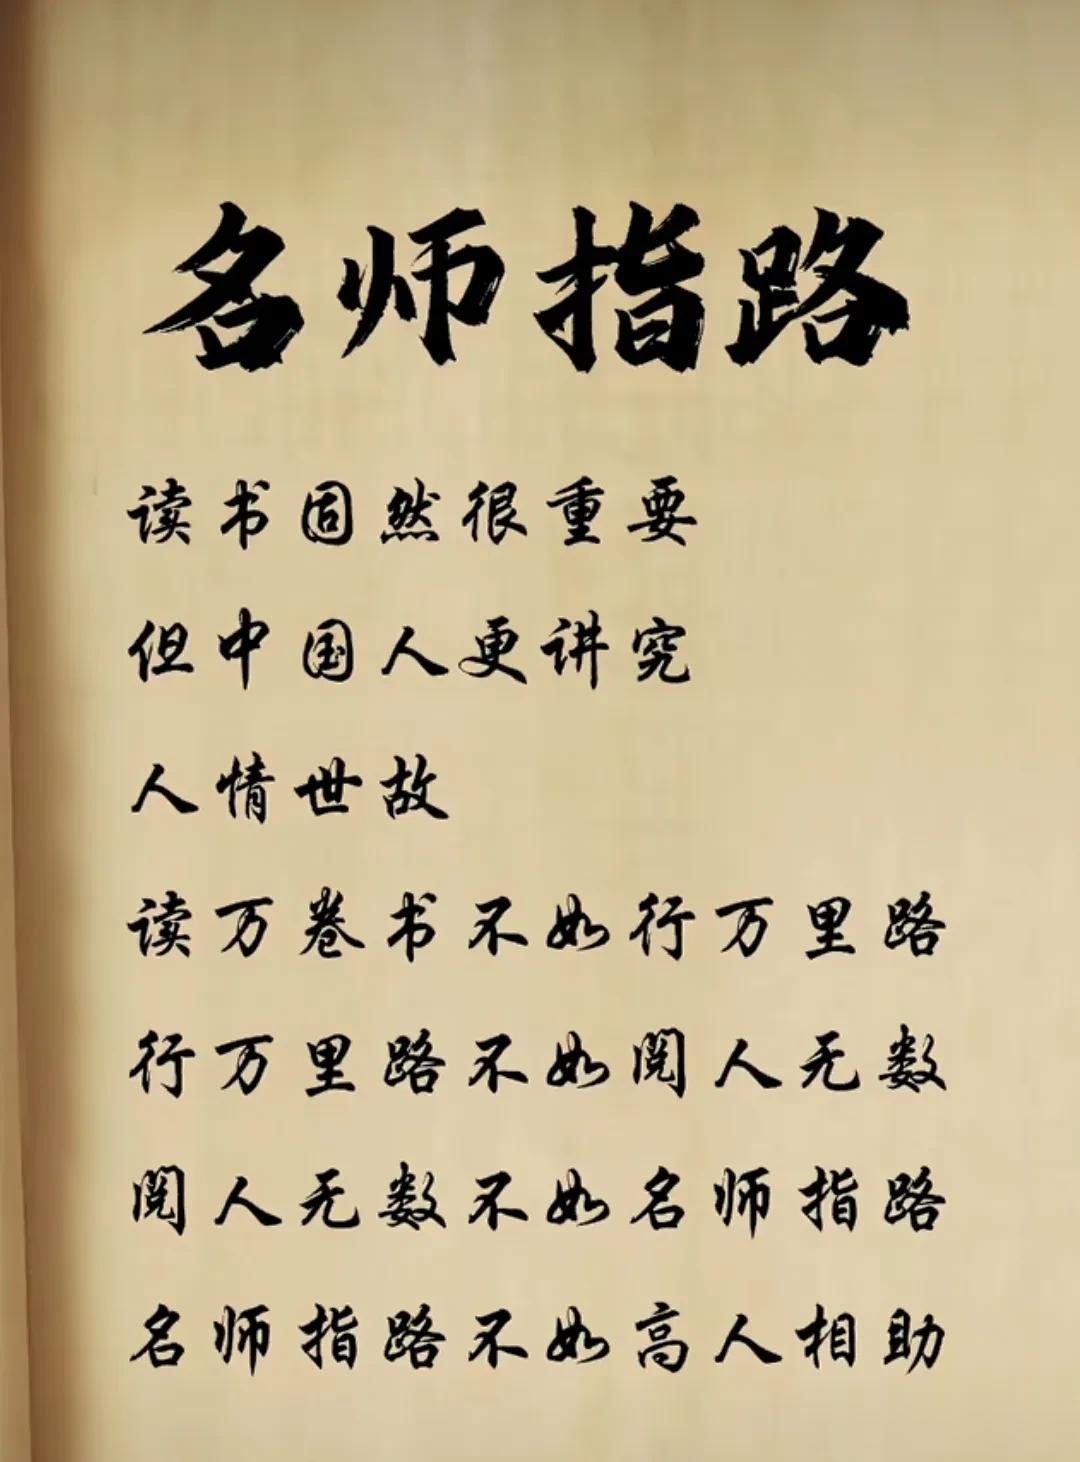 名师指路
读书固然很重要
但中国人更讲究
人情世故
读万卷书不如行万里路
行万里路不如阅人无数
阅人无数不如名师指路
名师指路不如高人相助